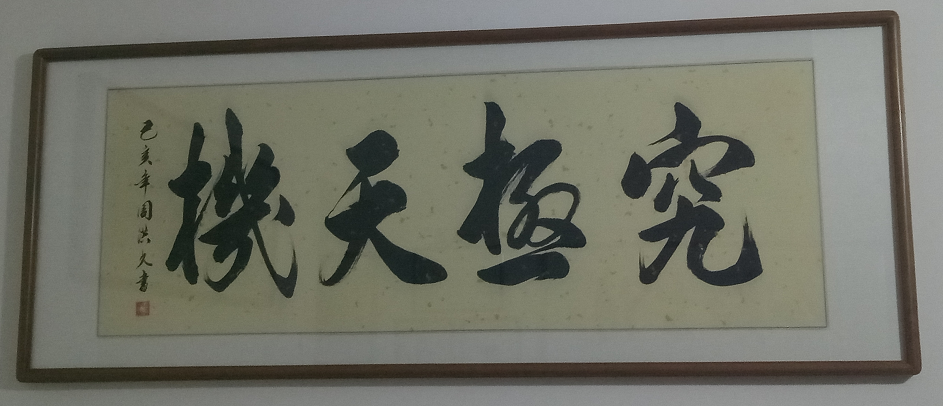 究極天機
己亥年周洪久書